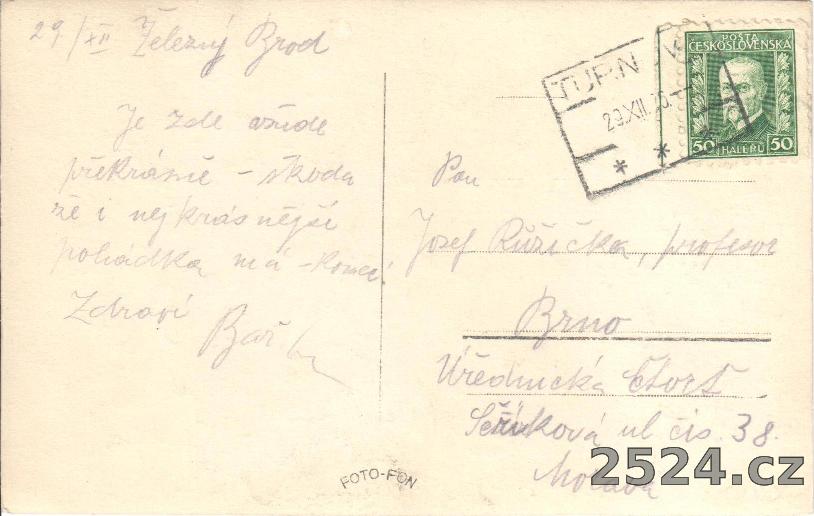 29/XII Železný Brod
Je zde všude
překrásně – škoda
že i nejkrásnější
pohádka má – konec!
Zdraví
POŠTA
ČESKOSLOVENSKA
50 HALÉŘŮ 50
TURN
29.XII.
Pan
Josef Růžička, profesor
Brno
Úřednická čtvrť
ul čís. 38.
Morava
FOTO-FON
2524.cz